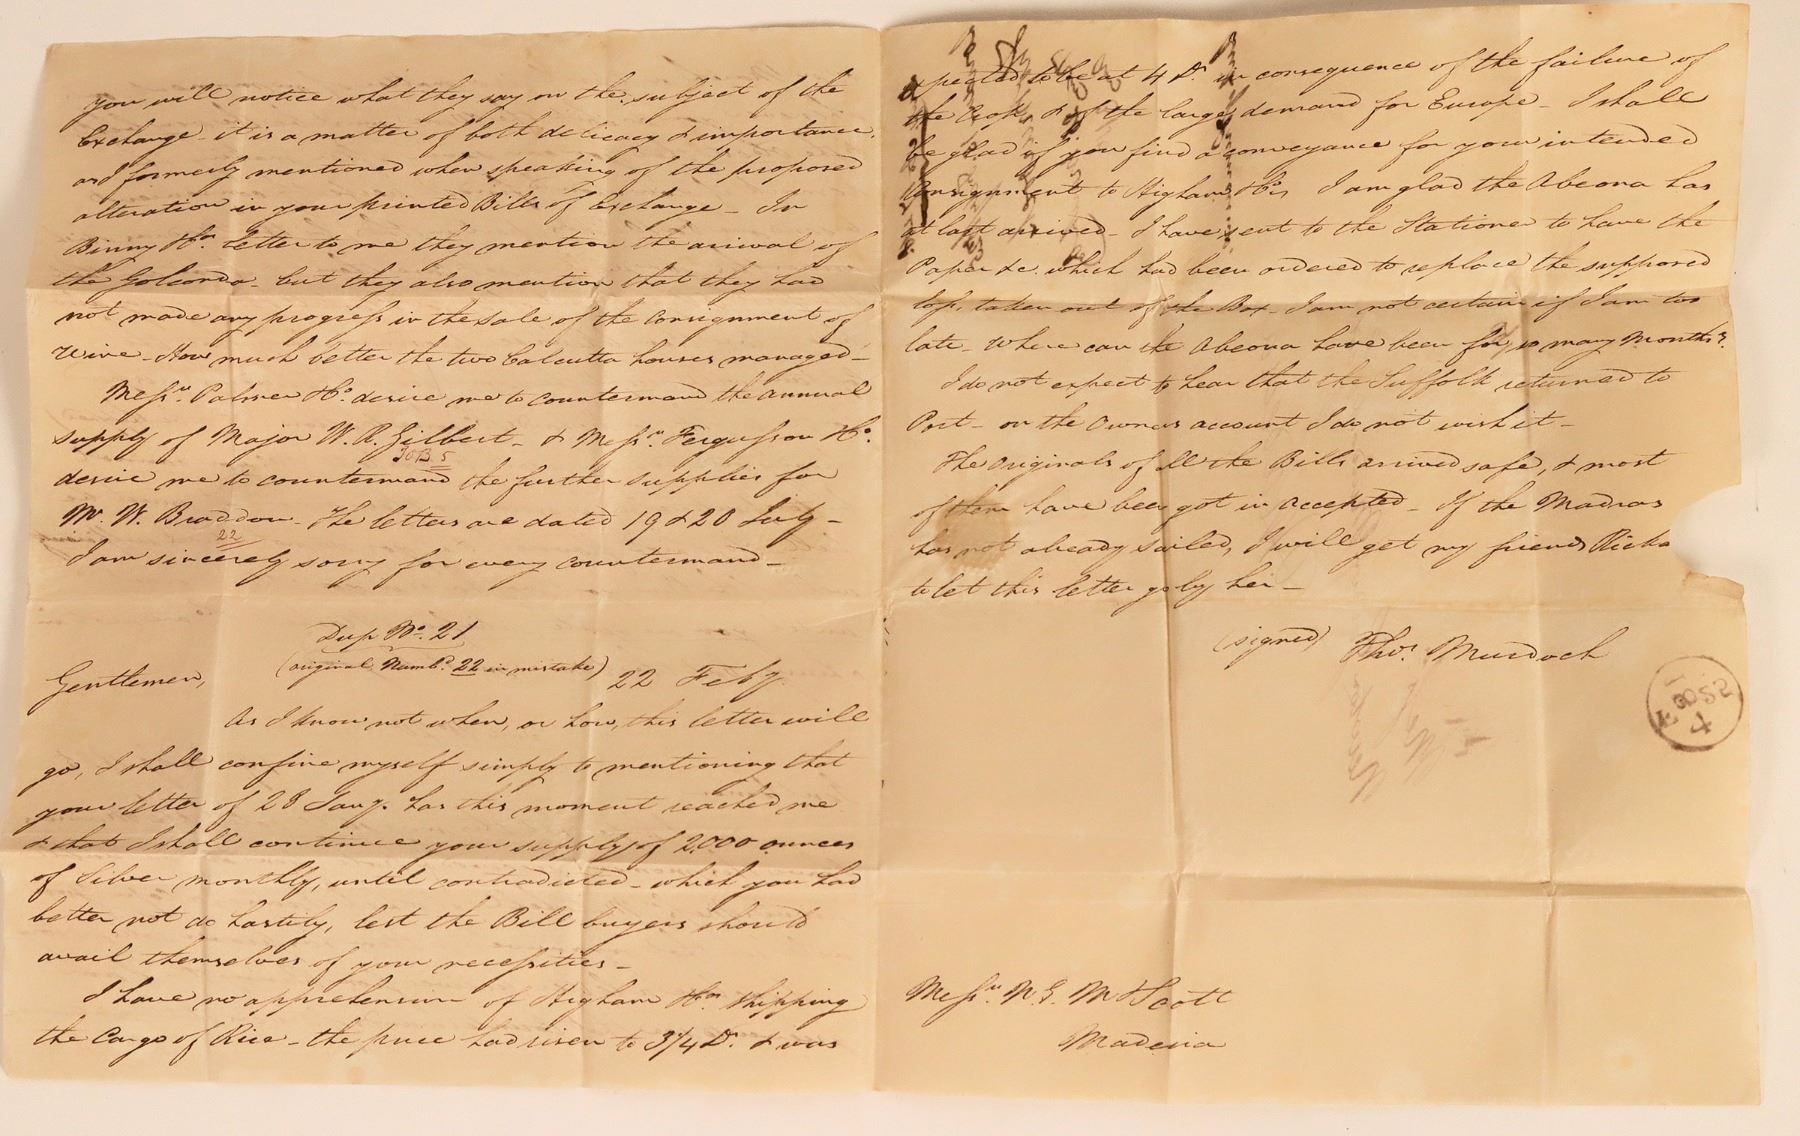 you will notice what they say on the subject of the
Exchange - it is a matter of both delicacy & importance.
as I formerly mentioned when speaking of the proposed
alteration in your printed Bills of Exchange - In
Binny & Co.s letter to me they mention the arrival of
the Golconda - but they also mention that they had
not made any progress in the sale of the Consignment of
Wine - How much better the two Calcutta houses managed -
Messrs. Palmer & Co. desire me to countermand the annual
supply of Major W. R. Gilbert - & Messrs. Fergusson & Co.
desire me to countermand the further supplies for
Mr. W. Braddon - The letters are dated 19 & 20 July -
22
I am sincerely sorry for every countermand -
Dup No. 21
(original Numbd. 22 in mistake)
Gentlemen,
22 Feby.
As I know not when, or how, this letter will
go, I shall confine myself simply to mentioning that
your letter of 28 Jany. has this moment reached me
& that I shall continue your supply of 2000 ounces
of Silver monthly, until contradicted - which you had
better not do hastily, lest the Bill buyers should
avail themselves of your necessities -
I have no apprehension of Higham & Co. shipping
the Cargo of Rice - the price had risen to 3¼ Dr. & was
expected to be at 4 Dr. in consequence of the failure of
the Crop, & of the large demand for Europe - I shall
be glad if you find a conveyance for your intended
Consignment to Higham & Co. I am glad the Abeona has
at last arrived - I have sent to the Stationer to have the
Paper &c. which had been ordered to replace the supposed
loss, taken out of the Box - I am not certain if I am too
late - Where can the Abeona have been for so many Months?
I do not expect to hear that the Suffolk returned to
Port - on the Owners account I do not wish it -
The Originals of all the Bills arrived safe, & most
of them have been got in accepted - If the Madras
has not already sailed, I will get my friend Ricka
to let this letter go by her -
(signed) Thos. Murdoch
4
Messrs. N. G. M & Scott
Madeira